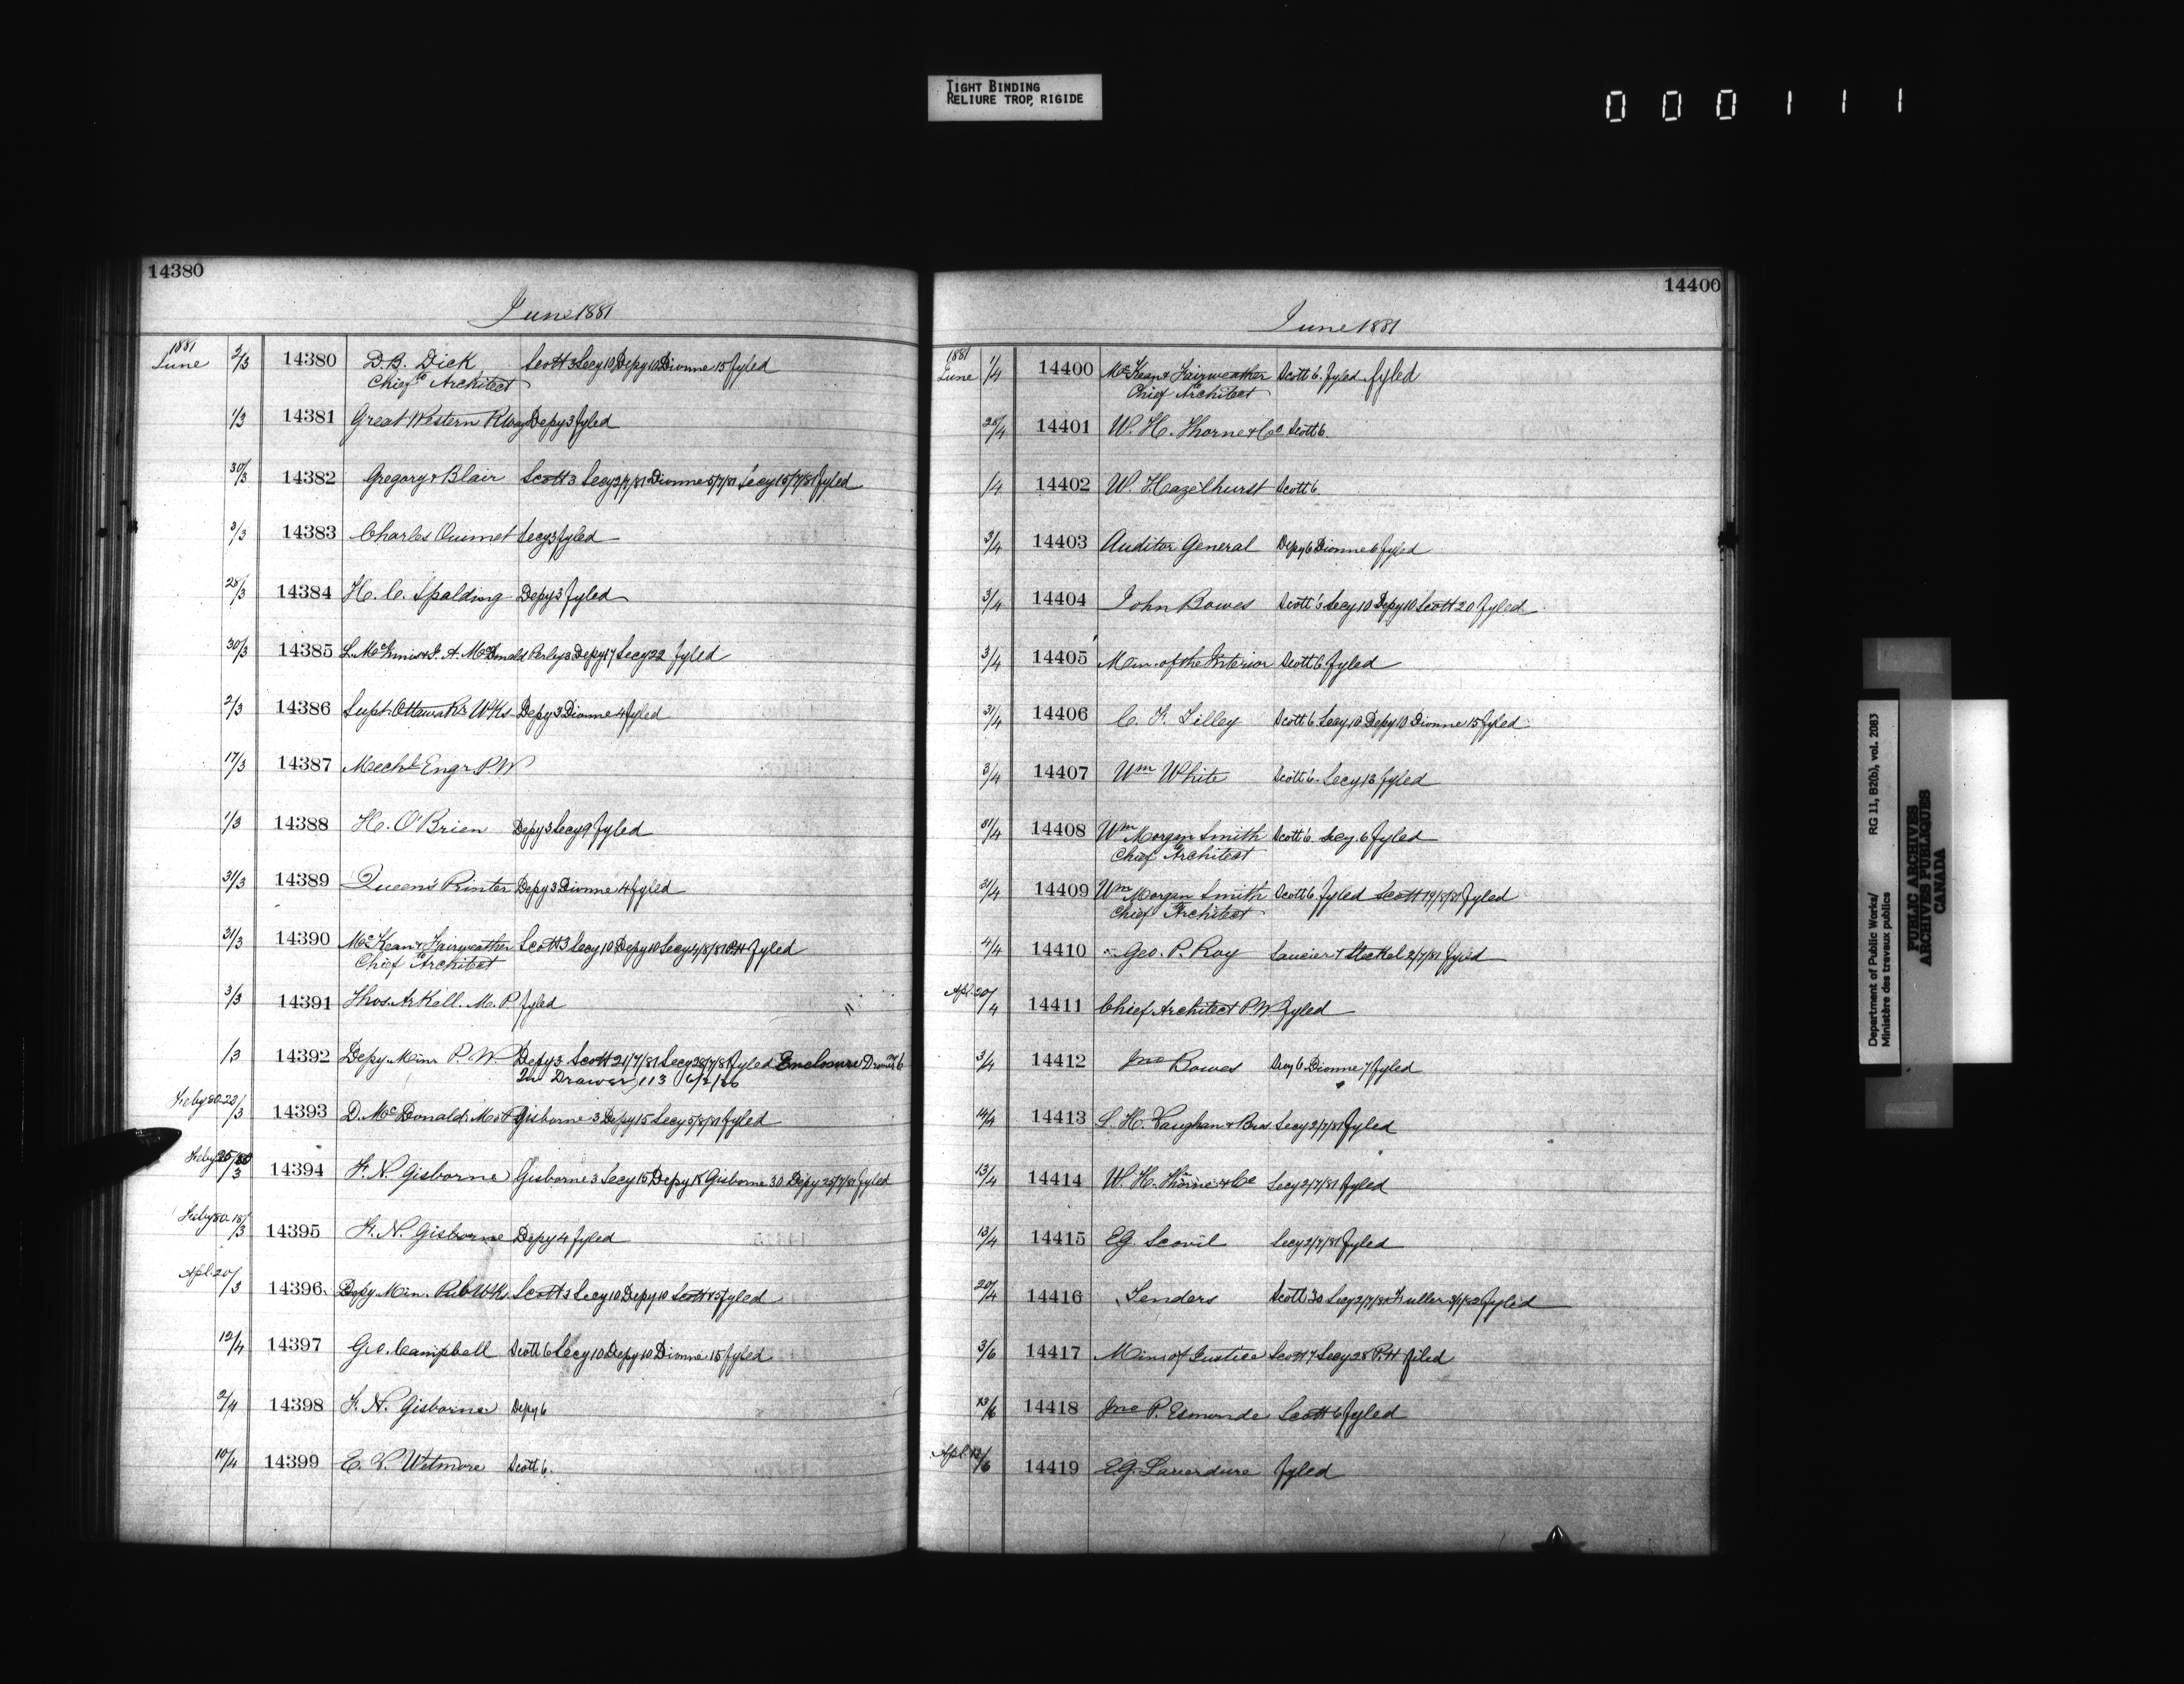 TIGHT BINDING
RELIURE TROP RIGIDE
000111
14380
June 1881
1881
June 2/3 14380 D.B. Dick Scott 3 Secy 10 Depy 10 Dionne 15 fyled
to Chief Architect
1/3 14381 Great Western Rlway Depy 3 fyled
30/3 14382 Gregory & Blair Scott 3 Secy 2/7/81 Dionne 5/7/81 Secy 15/7/81 fyled
3/3 14383 Charles Ouimet Secy 3 fyled
28/3 14384 H. C. Spalding Depy 3 fyled
30/3 14385 McDonald Perley 3 Depy 17 Secy 22 fyled
2/3 14386 Supt. Ottawa Rr Wks Depy 3 Dionne 4 fyled
17/3 14387 Mechl Engr P.W
1/3 14388 H. O'Brien Depy 3 Secy 9 fyled
31/3 14389 Queen's Printer Depy 3 Dionne 4 fyled
31/3 14390 McKean & Fairweather Scott 3 Secy 10 Depy 10 Secy 4/8/81 P.H fyled
to Chief Architect
3/3 14391 Thos. Arkell. M. P. fyled
/3 14392 Depy Minr P. W Depy 3 Scott 21/7/81 Secy 28/7/81 fyled Enclosure
In Drawer 113
Feby 80 23/3 14393 D. McDonald Gisborne 3 Depy 15 Secy 5/8/81 fyled
Feby 25/80 /3 14394 F. N. Gisborne Gisborne 3 Secy 15 Depy 18 Gisborne 30 Depy 25/7/81 fyled
Feby 80 18/3 14395 F. N. Gisborne Depy 4 fyled
Apl. 20/3 14396 Depy Min. Pub Wks. Scott 3 Secy 10 Depy 10 Scott 15 fyled
12/4 14397 Geo. Campbell Scott 6 Secy 10 Depy 10 Dionne 15 fyled
2/4 14398 F. N. Gisborne Depy 6
10/4 14399 E. L. Wetmore Scott 6.
14400
June 1881
1881
June 1/4 14400 McKean & Fairweather Scott 6. fyled fyled
to Chief Architect
28/4 14401 W. H. Thorne & Co Scott 6.
/4 14402 W. Hazelhurst Scott 6.
3/4 14403 Auditor General Depy 6 Dionne 6 fyled
3/4 14404 John Bowes Scott 6 Secy 10 Depy 10 Scott 20 fyled
3/4 14405 Min. of the Interior Scott 6 fyled
31/4 14406 C. F. Tilley Scott 6 Secy 10 Depy 10 Dionne 15 fyled
3/4 14407 Wm White Scott 6. Secy 13 fyled
31/4 14408 Wm Morgan Smith Scott 6. Secy. 6 fyled
to Chief Architect
31/4 14409 Wm Morgan Smith Scott 6 fyled Scott fyled
to Chief Architect
4/4 14410 Geo. P. Roy Saucier & Steckel 2/7/81 fyled
Apl. 20/4 14411 Chief Architect P.W fyled
3/4 14412 Jno Bowes 6 Dionne 7 fyled
14/4 14413 Vaughan & Bros Secy 2/7/81 fyled
13/4 14414 W. H. Thorne & Co Secy 2/7/81 fyled
13/4 14415 E.G. Scovil Secy 2/7/81 fyled
20/4 14416 Tenders Scott 30 Secy 2/7/81 Fuller fyled
3/6 14417 Min of Justice Scott 7 Secy 28 P.H filed
13/6 14418 Jno P. Esmonde Scott 6 fyled
Apl. /6 14419 E.G. Laverdure fyled
Department of Public Works/ RG 11, B2(b), vol. 2083
Ministère des travaux publics
PUBLIC ARCHIVES
ARCHIVES PUBLIQUES
CANADA